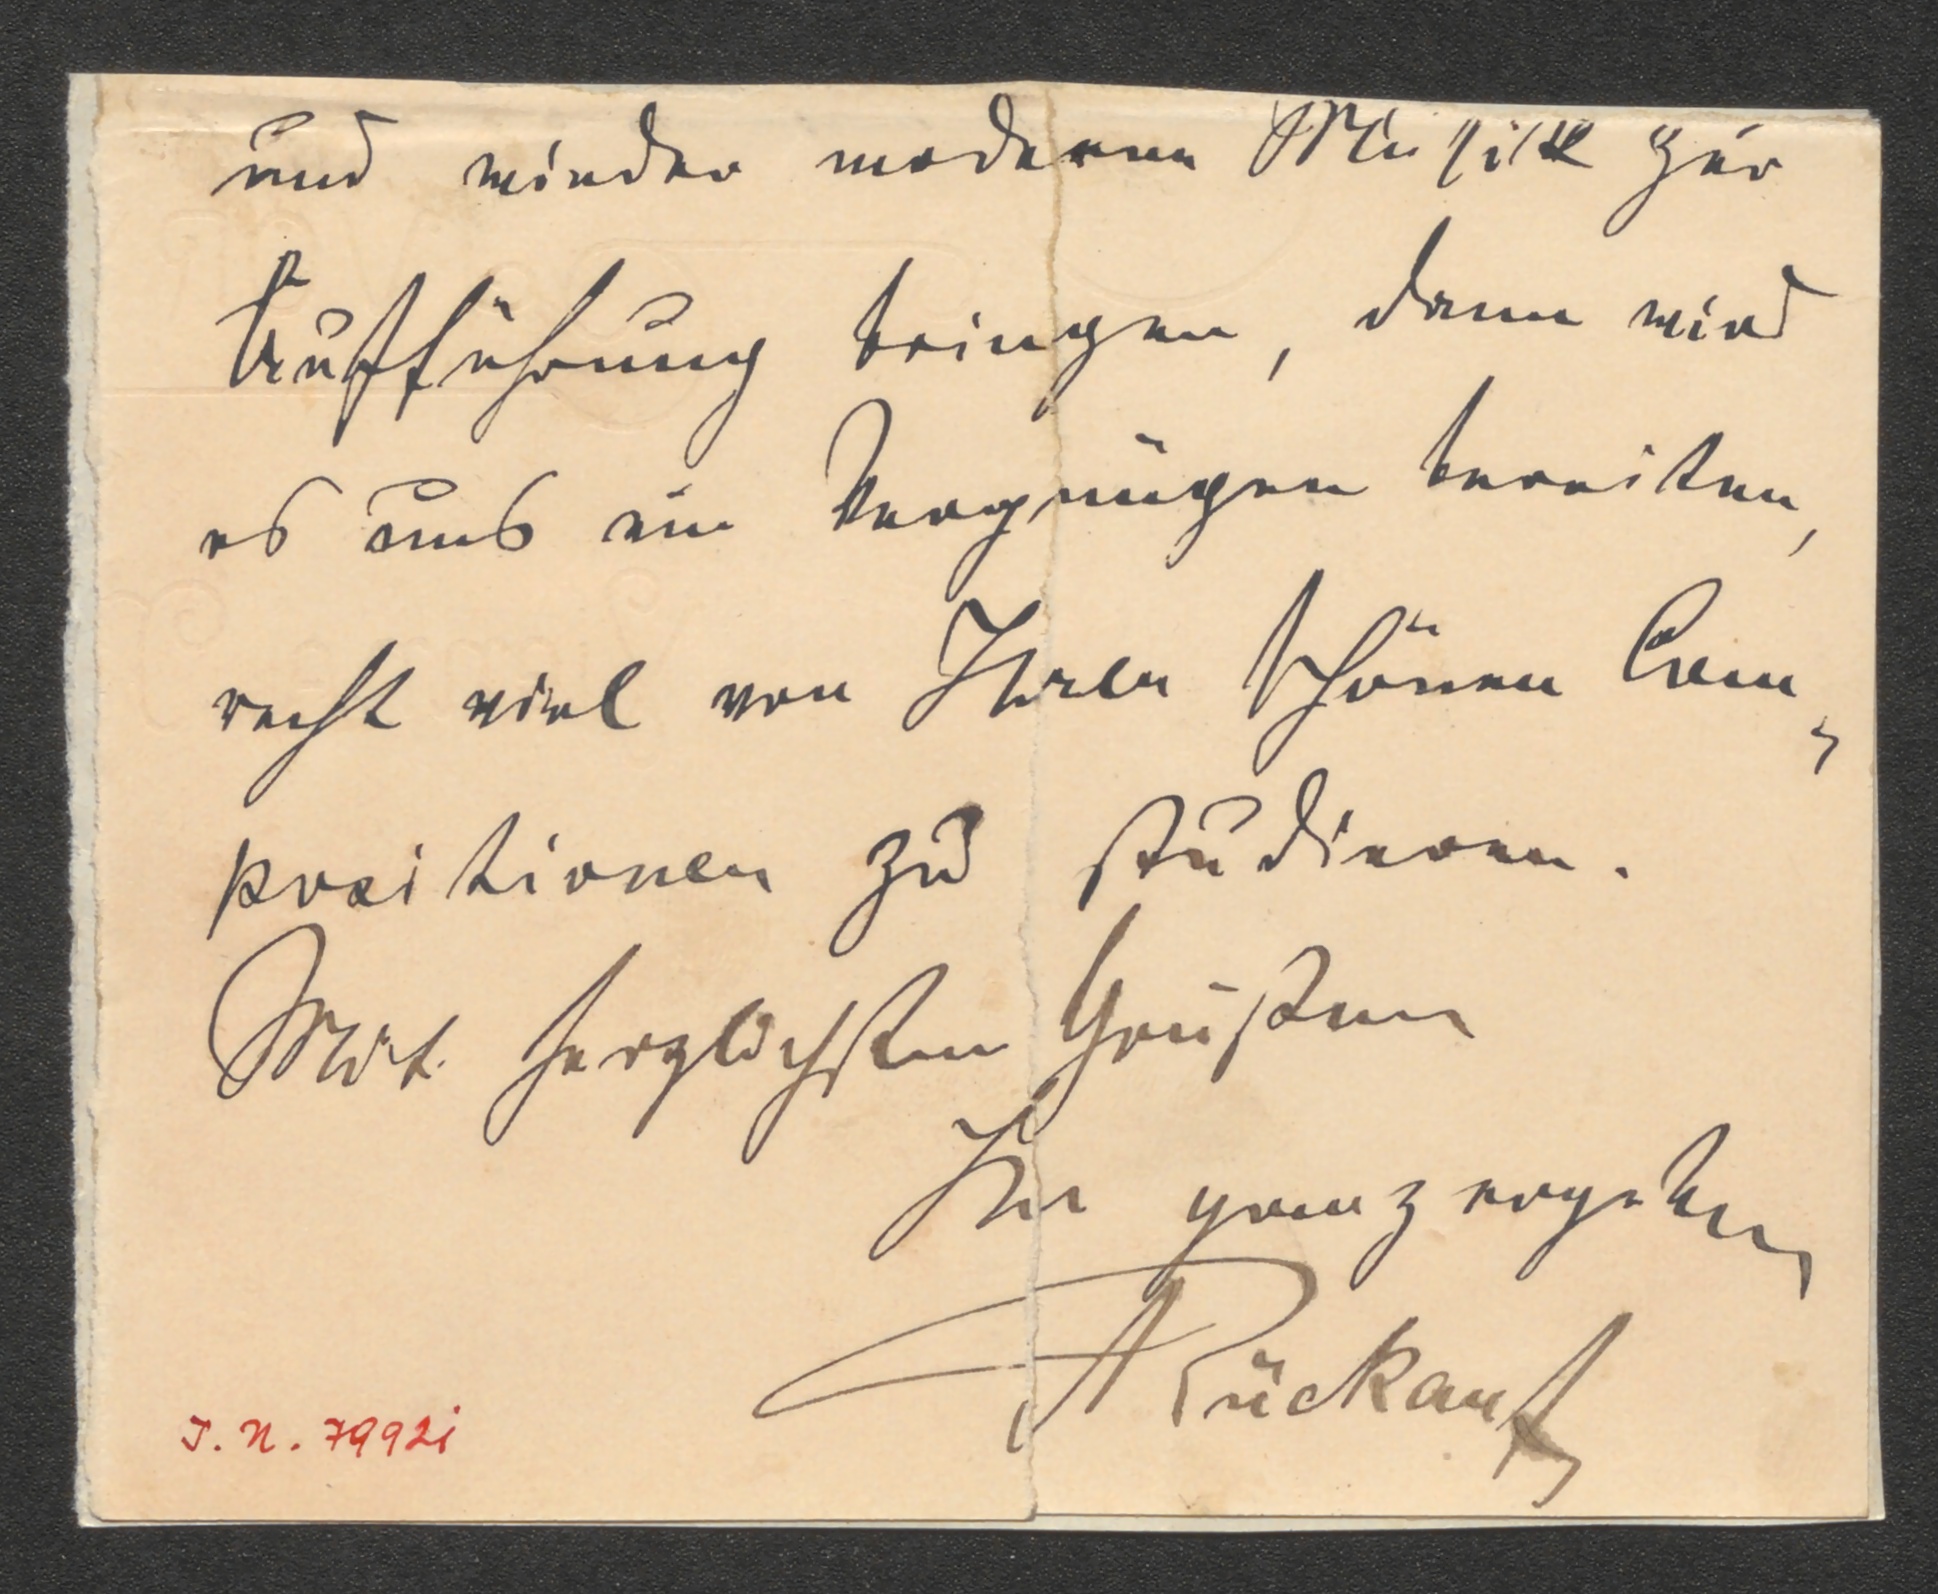 und wieder moderne Musik zur
Aufführung bringen, dann wird
es uns ein Vergnügen bereiten,
recht viel von Ihren schönen Com-
positionen zu studieren.
Mit herzlichsten Grüßen
Ihr ganz ergeben
A Rückauf
I. N. 79921